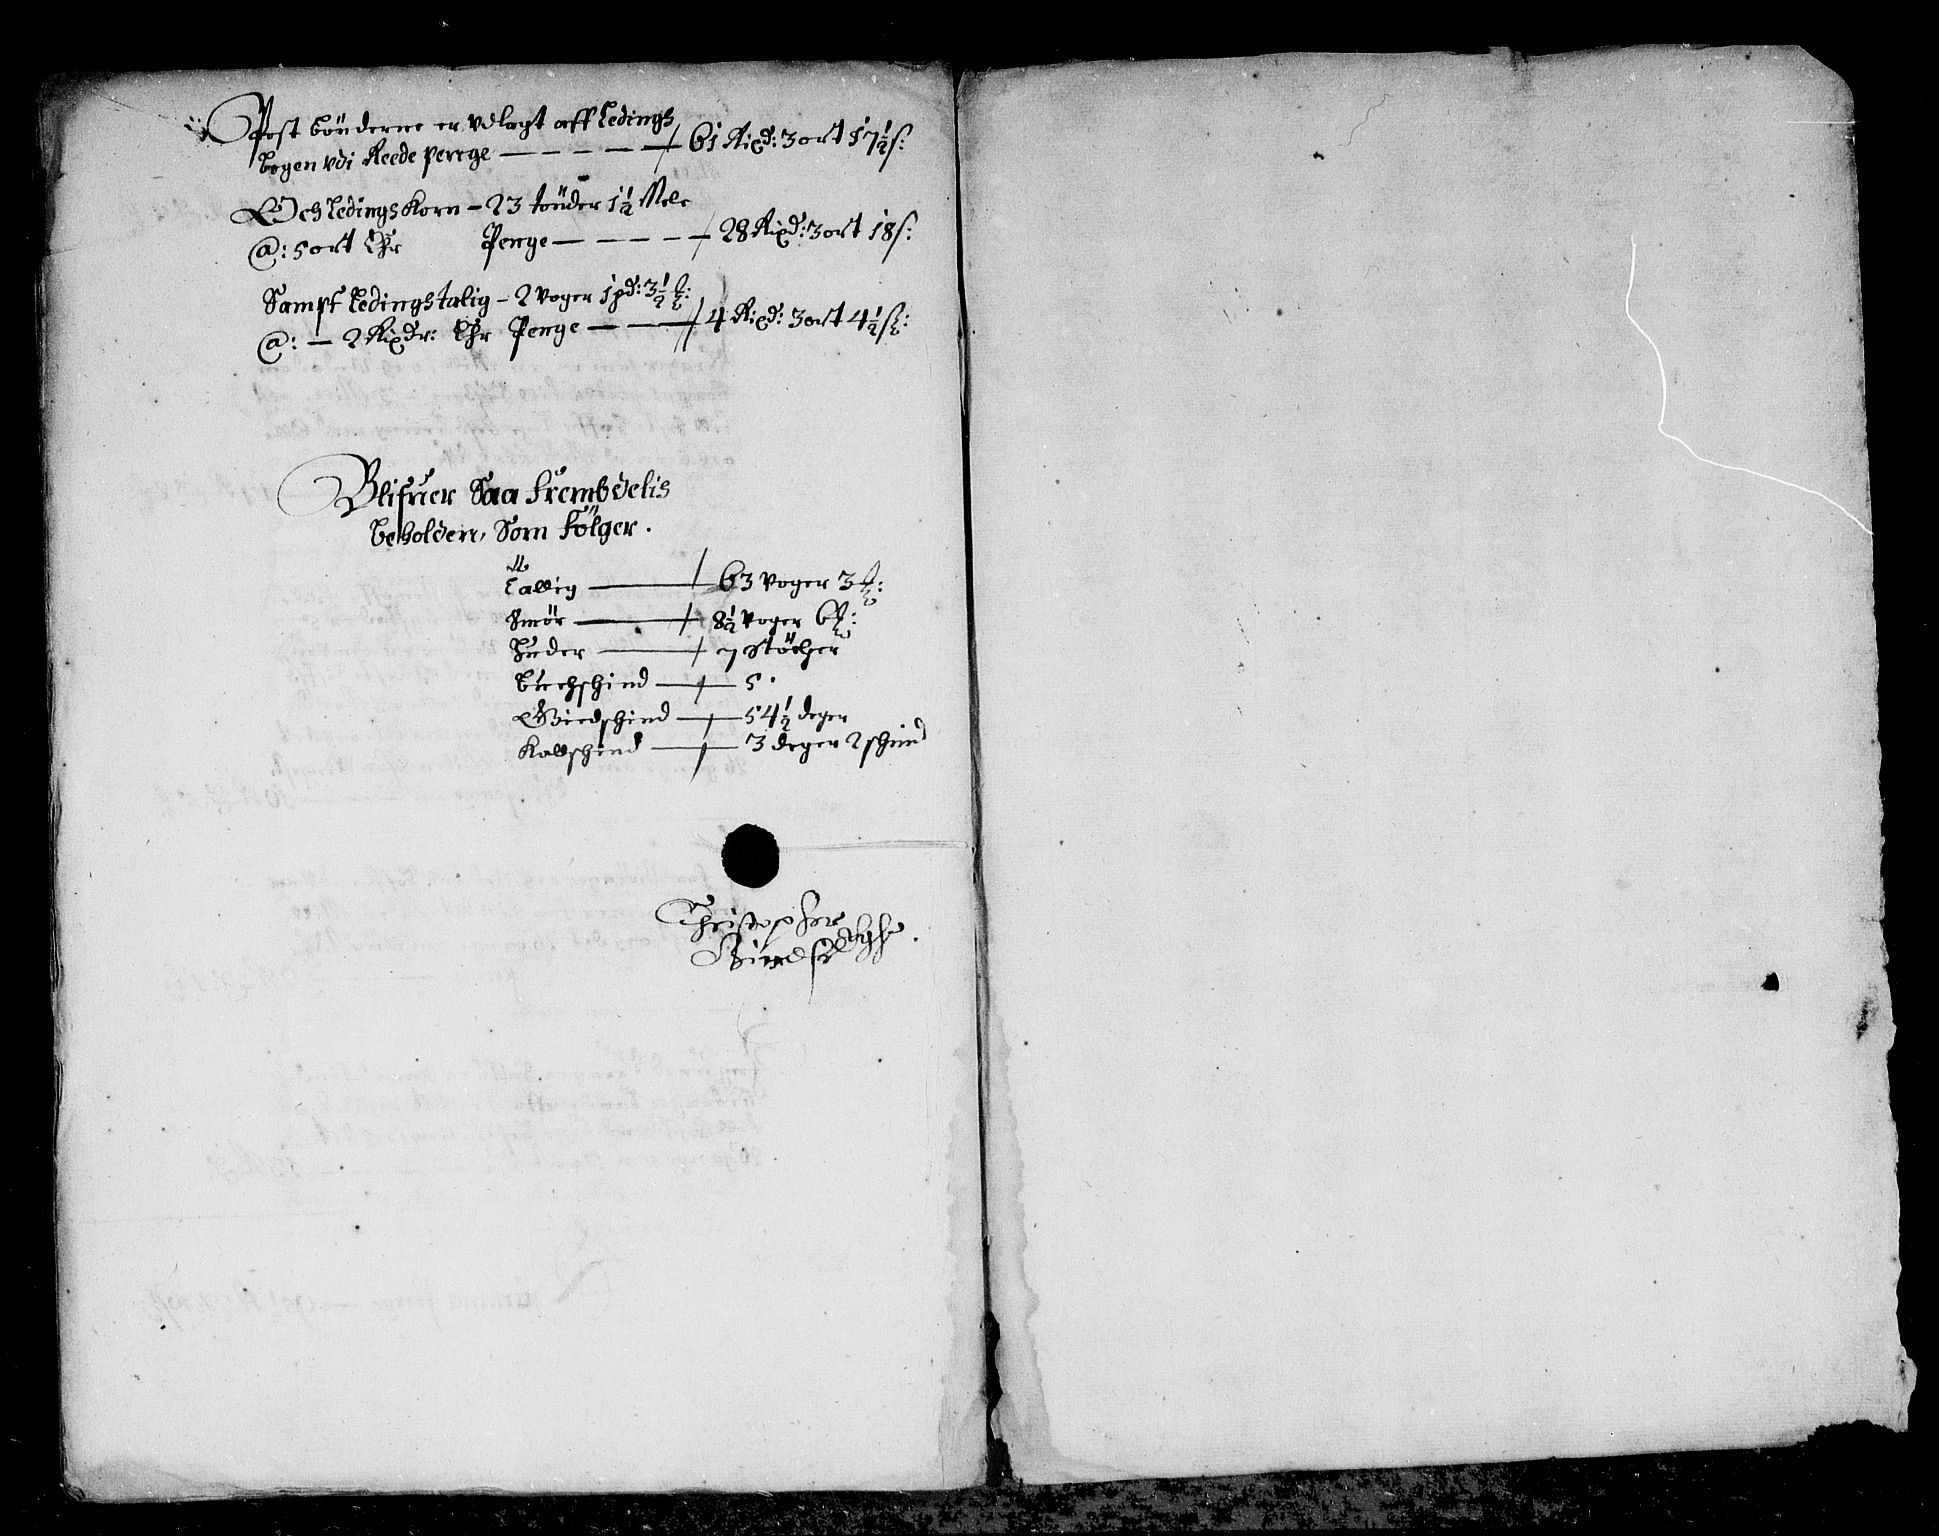 Post bönderne er vdlagt aff Ledings
bogen vdi Reede penge — 61 Rixd: 3 ort 17½ s:
Och Ledings Korn – 23 tönder 1½ Mele
@: 5 ort Er Penge — 28 Rixd: 3 ort 18 s:
Sampt Ledings talig – 2 voger 1 pd: 3½ ℔:
@: — 2 Rixdr: Er Penge — 4 Rixd: 3 ort 4½ s:
Blifuer Saa Frembdelis
beholden, Som Fölger.
Tallig — 63 voger 3 ℔:
Smör — 8½ voger 6 ℔:
Huder — 7 Stöcher
buchschind — 5.
Giedschind — 54½ deger
Kallschend — 3 deger 2 schind
Christopher